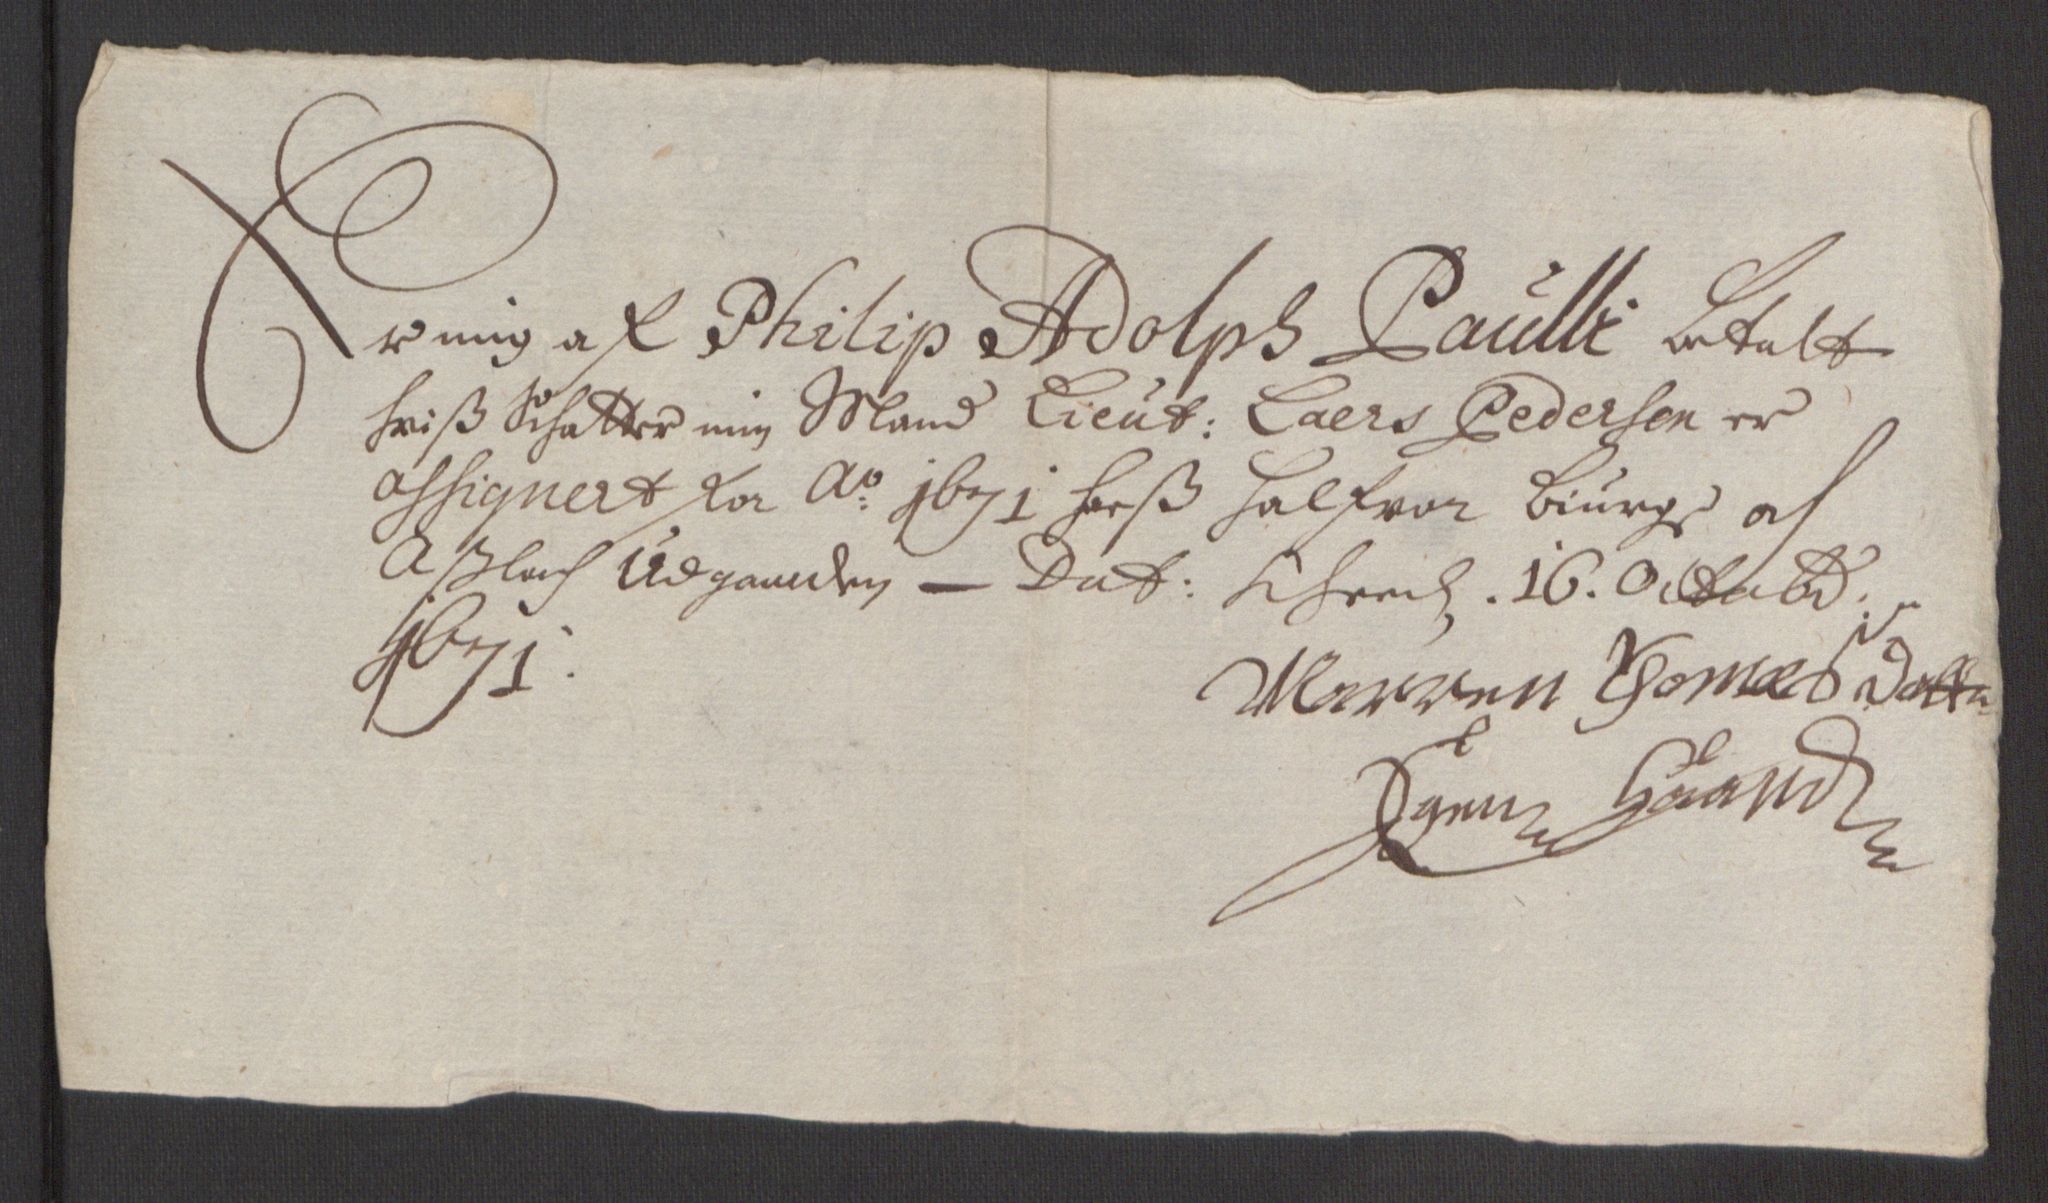 Er mig af Philip Adolph Paulli betalt
hviß Schatter min Mand Lieut: Laers Pedersen er
assignert for Ao. 1671 hoeß Halfvor Biurgs af
Aßlach Udgaarden — Dat: 16. Octobr:
1671.
Marren Thomes Datter
Egen Haand